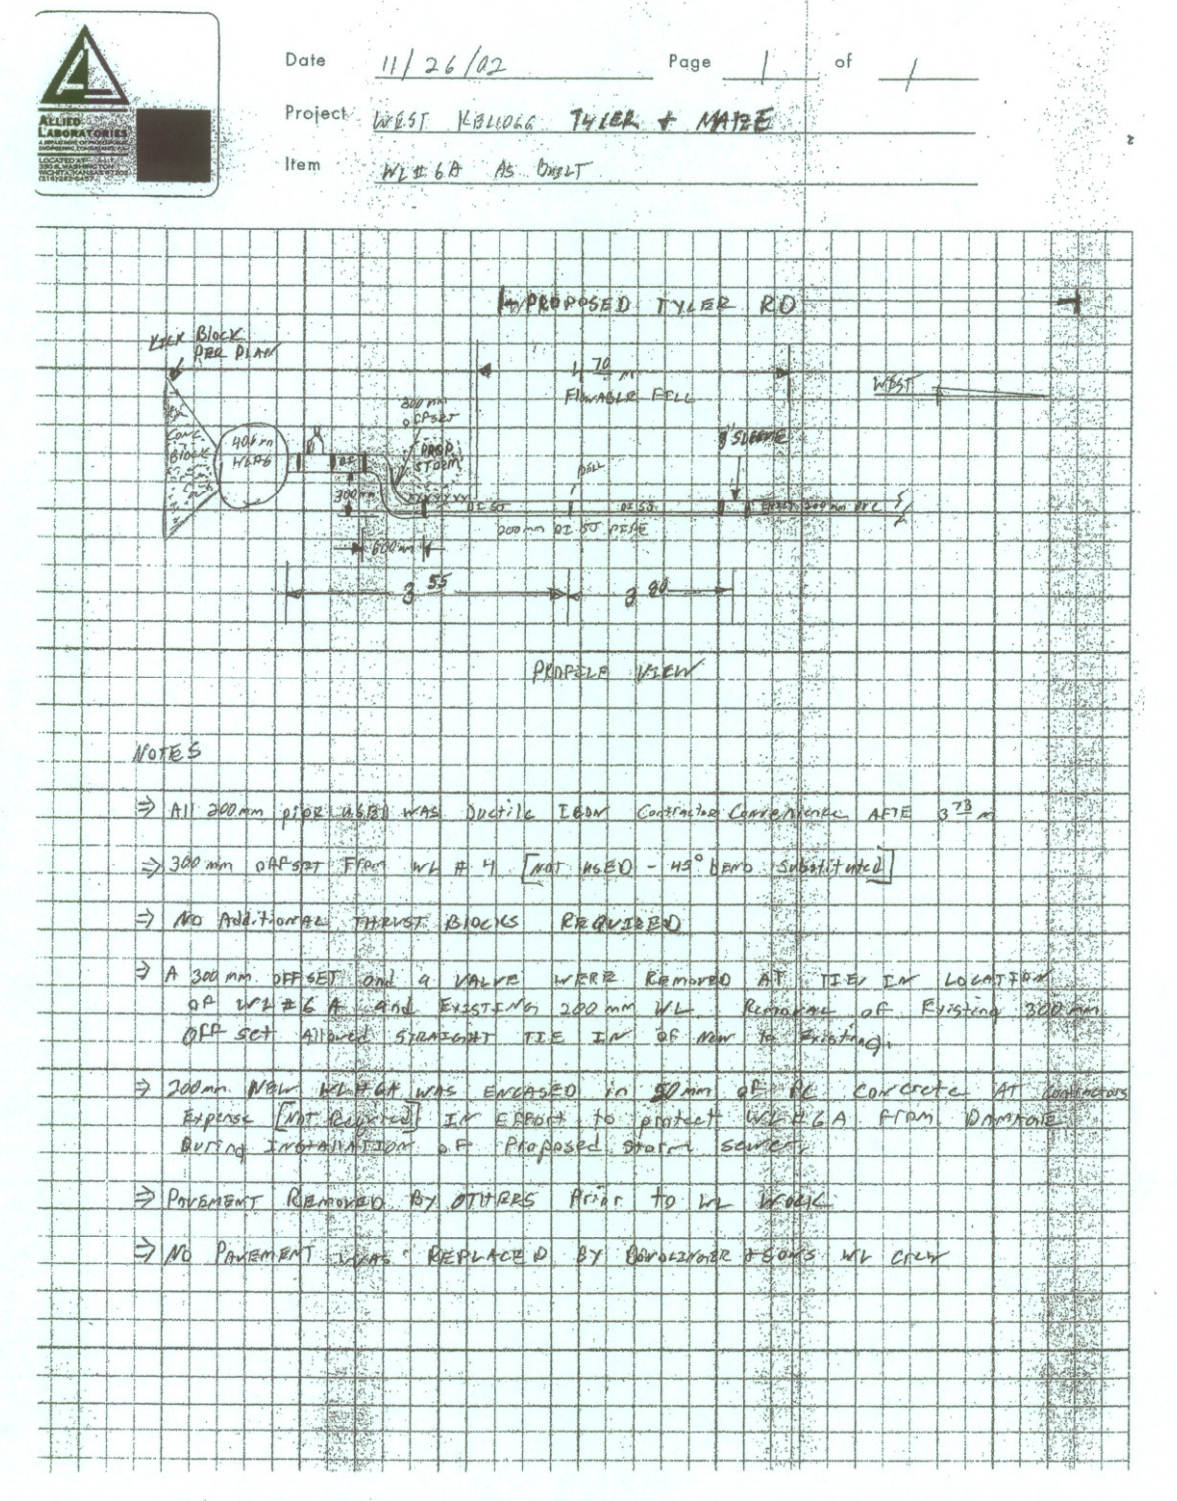 ALLIED
LABORATORIES
LOCATED AT
WICHITA, KANSAS 67202
Date 11/26/02 Page 1 of 1
Project WEST KELLOGG TYLER & MAIZE
Item WL#6A AS BUILT
PROPOSED TYLER RD
KICK BLOCK
PER PLAN
4 70 m
FLOWABLE FILL
WEST
300 mm
OFFSET
8" SLEEVE
CONC
BLOCK
406 m
PROP
STORM
BELL
300 mm
DI SJ
DI SJ
EXIST 200mm PVC
200mm DI SJ PIPE
600mm
3 55
3 80
PROFILE VIEW
NOTES
⇒ All 200mm pipe USED WAS Ductile IRON Contractor Convenience AFTE 3 73 m
⇒ 300 mm OFFSET From WL # 4 [NOT USED - 45° BEND Substituted]
⇒ NO AdditionAL THRUST BLOCKS REQUIRED
⇒ A 300 mm OFFSET and a VALVE WERE Removed AT TIE IN LOCATION
OF WL#6A and EXISTING 200 mm WL. Removal of Existing 300 mm
OFF set Allowed STRAIGHT TIE IN OF New to Existing.
⇒ 200mm NEW WL#6A WAS ENCASED in 50 mm OF PC Concrete AT Contractors
Expense [Not Required] IN EFFORT to protect WL#6A From DAMAGE
During INSTALLATION OF Proposed storm sewer.
⇒ PAVEMENT REMOVED BY OTHERS Prior to WL Work
⇒ NO PAVEMENT WAS REPLACED BY & SONS WL Crew